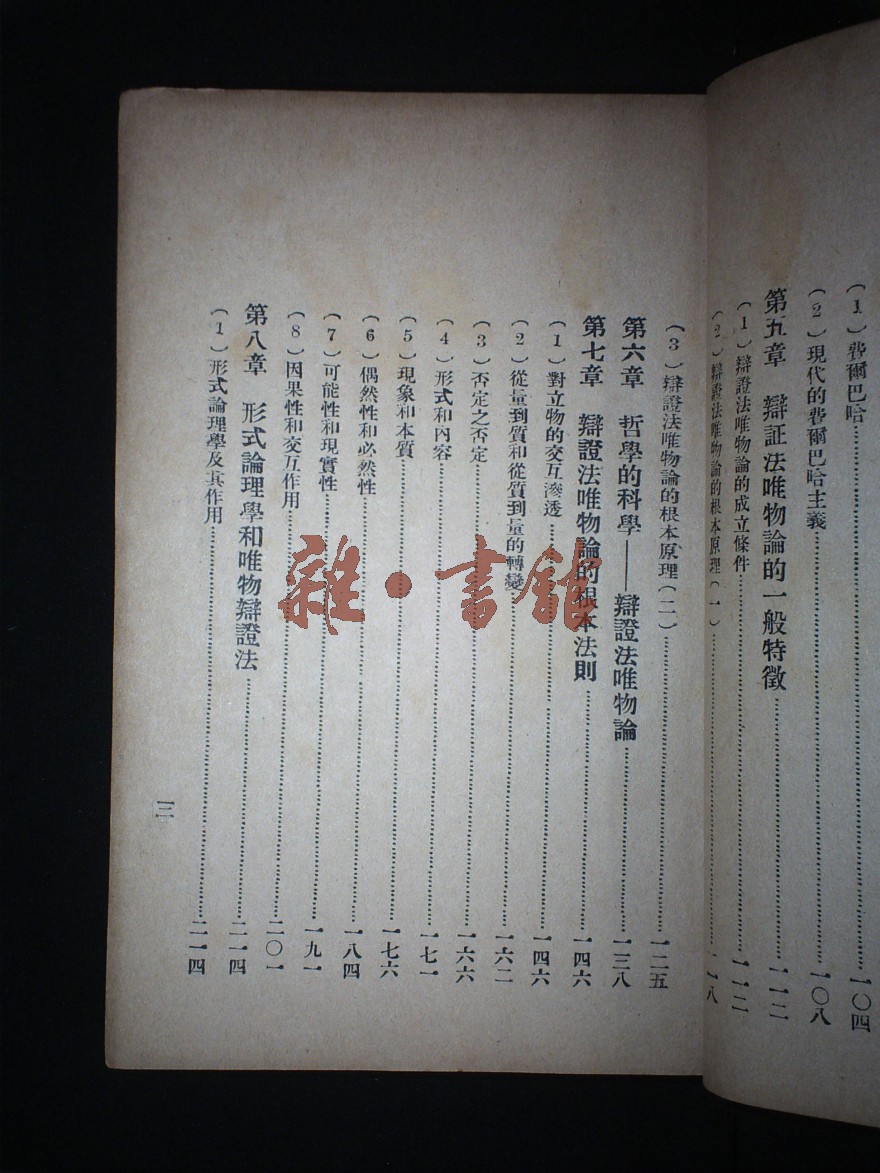 （1）費爾巴哈……一〇四
（2）現代的費爾巴哈主義……一〇八
第五章　辯証法唯物論的一般特徵……一一二
（1）辯證法唯物論的成立條件……一一二
（2）辯證法唯物論的根本原理（一）……一一八
（3）辯證法唯物論的根本原理（二）……一二五
第六章　哲學的科學——辯證法唯物論……一三八
第七章　辯證法唯物論的根本法則……一四六
（1）對立物的交互滲透……一四六
（2）從量到質和從質到量的轉變……一六二
（3）否定之否定……一六六
（4）形式和內容……一七一
（5）現象和本質……一七六
（6）偶然性和必然性……一八四
（7）可能性和現實性……一九一
（8）因果性和交互作用……二〇一
第八章　形式論理學和唯物辯證法……二一四
（1）形式論理學及其作用……二一四
三
雜·書館